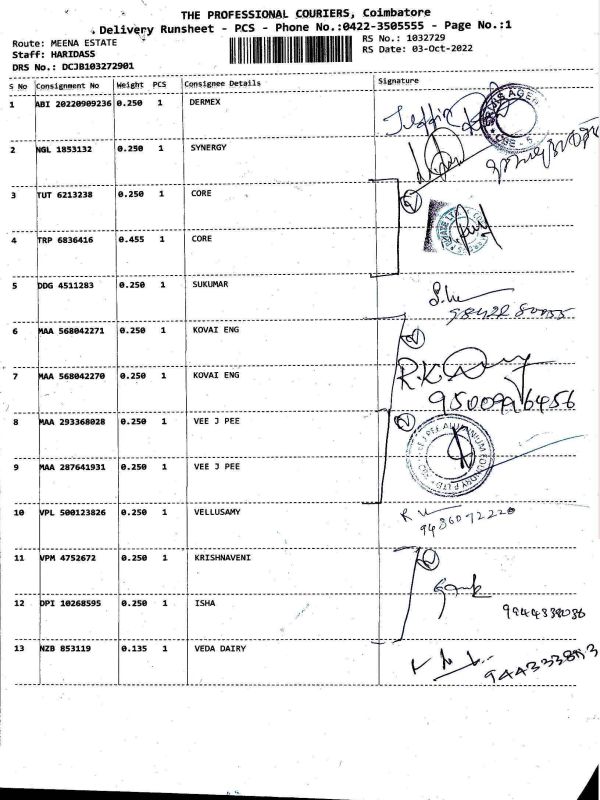 THE PROFESSIONAL COURIERS, Coimbatore
Delivery Runsheet - PCS - Phone No.:0422-3505555 - Page No.:1
Route: MEENA ESTATE
RS No.: 1032729
Staff: HARIDASS
RS Date: 03-Oct-2022
DRS No.: DCJB103272901
S No Consignment No Weight PCS Consignee Details Signature
1 ABI 20220909236 0.250 1 DERMEX
2 NGL 1853132 0.250 1 SYNERGY
3 TUT 6213238 0.250 1 CORE
4 TRP 6836416 0.455 1 CORE
5 DDG 4511283 0.250 1 SUKUMAR
6 MAA 568042271 0.250 1 KOVAI ENG
7 MAA 568042270 0.250 1 KOVAI ENG
R.K.
8 MAA 293368028 0.250 1 VEE J PEE
9 MAA 287641931 0.250 1 VEE J PEE
10 VPL 500123826 0.250 1 VELLUSAMY
9486072220
11 VPM 4752672 0.250 1 KRISHNAVENI
12 DPI 10268595 0.250 1 ISHA
13 NZB 853119 0.135 1 VEDA DAIRY